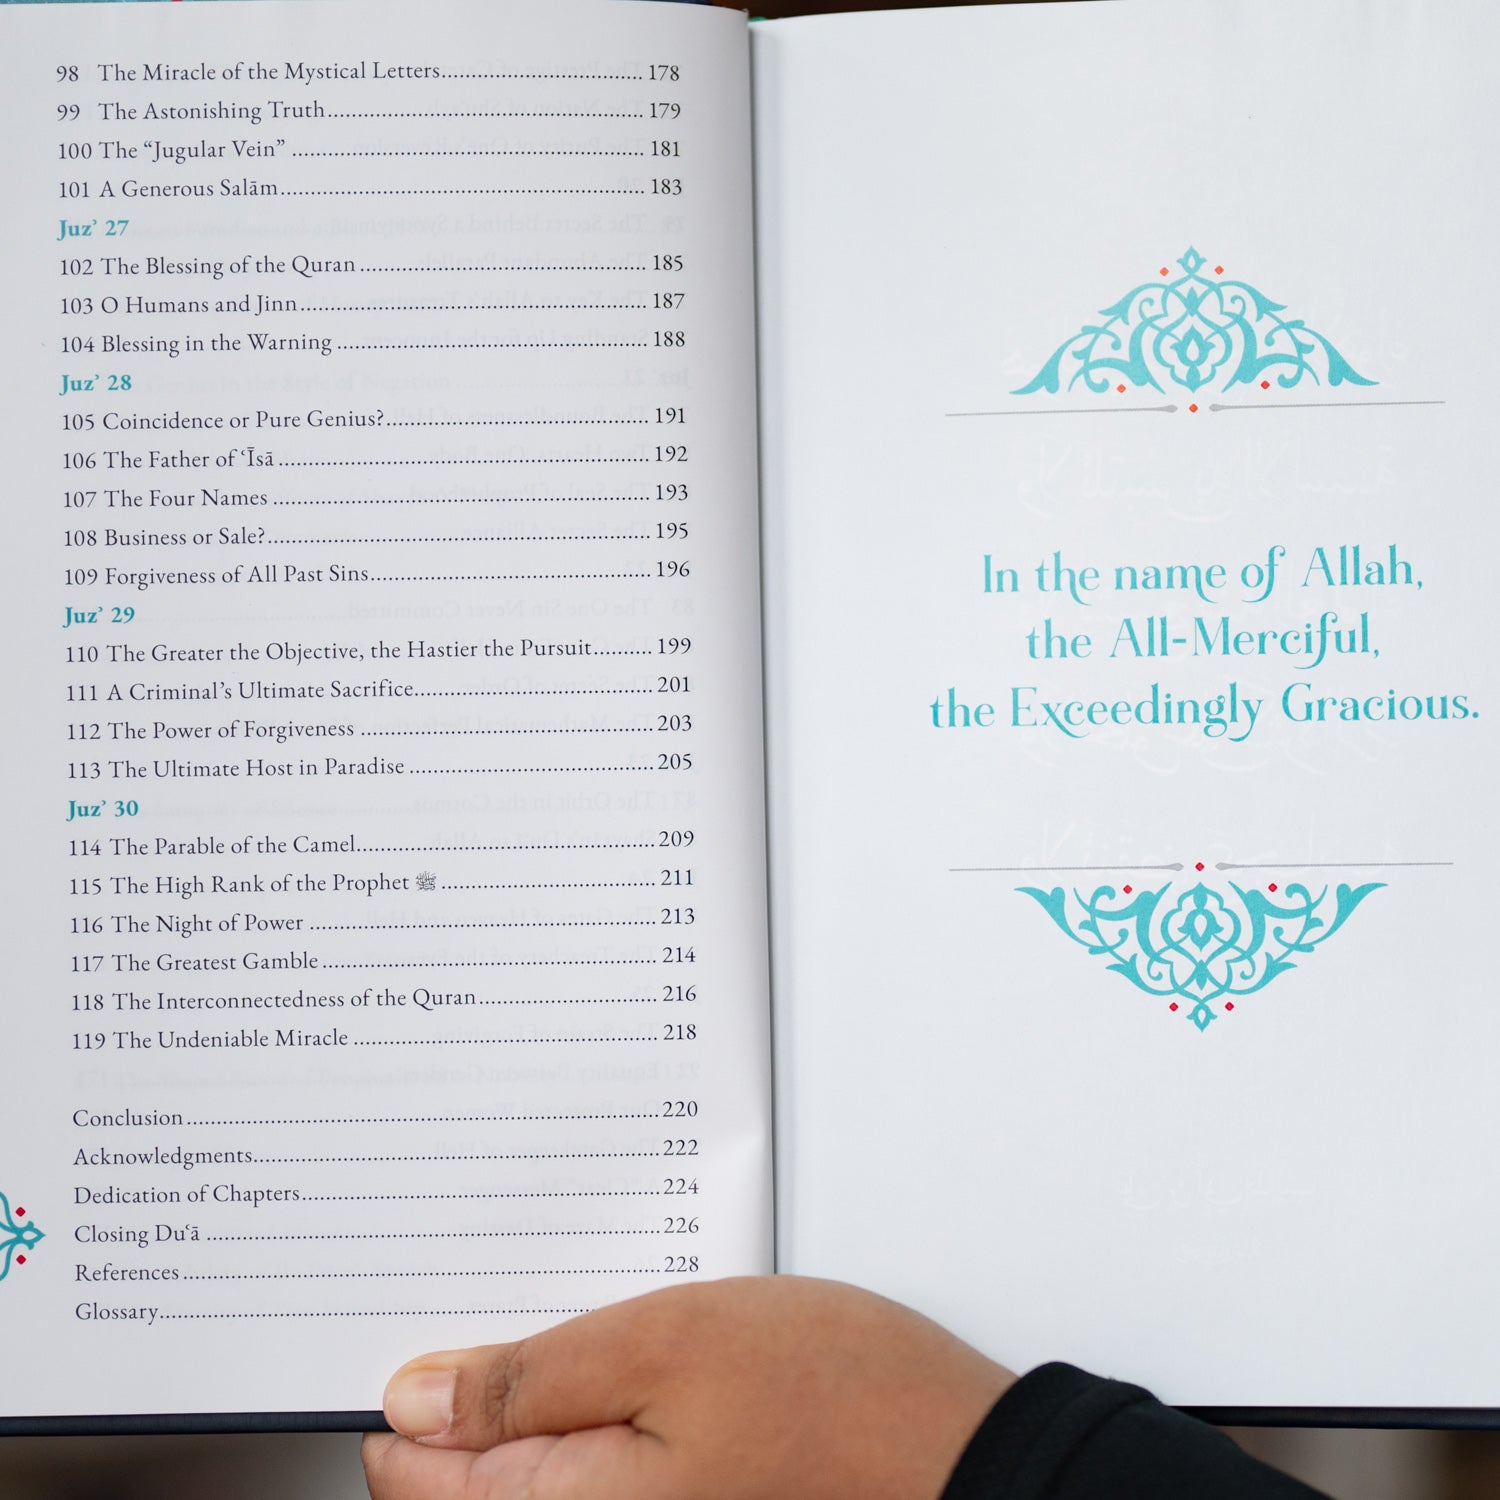 98 The Miracle of the Mystical Letters.............................. 178
99 The Astonishing Truth................................................ 179
100 The “Jugular Vein” ..................................................... 181
101 A Generous Salām....................................................... 183
Juz’ 27
102 The Blessing of the Quran ........................................... 185
103 O Humans and Jinn.................................................... 187
104 Blessing in the Warning .............................................. 188
Juz’ 28
105 Coincidence or Pure Genius?....................................... 191
106 The Father of ʿĪsā ........................................................ 192
107 The Four Names ......................................................... 193
108 Business or Sale?.......................................................... 195
109 Forgiveness of All Past Sins.......................................... 196
Juz’ 29
110 The Greater the Objective, the Hastier the Pursuit......... 199
111 A Criminal’s Ultimate Sacrifice.................................... 201
112 The Power of Forgiveness ............................................ 203
113 The Ultimate Host in Paradise ..................................... 205
Juz’ 30
114 The Parable of the Camel............................................. 209
115 The High Rank of the Prophet ﷺ ................................ 211
116 The Night of Power .................................................... 213
117 The Greatest Gamble .................................................. 214
118 The Interconnectedness of the Quran........................... 216
119 The Undeniable Miracle .............................................. 218
Conclusion ....................................................................... 220
Acknowledgments............................................................. 222
Dedication of Chapters...................................................... 224
Closing Duʿā .................................................................... 226
References ........................................................................ 228
Glossary................................................................
In the name of Allah,
the All-Merciful,
the Exceedingly Gracious.